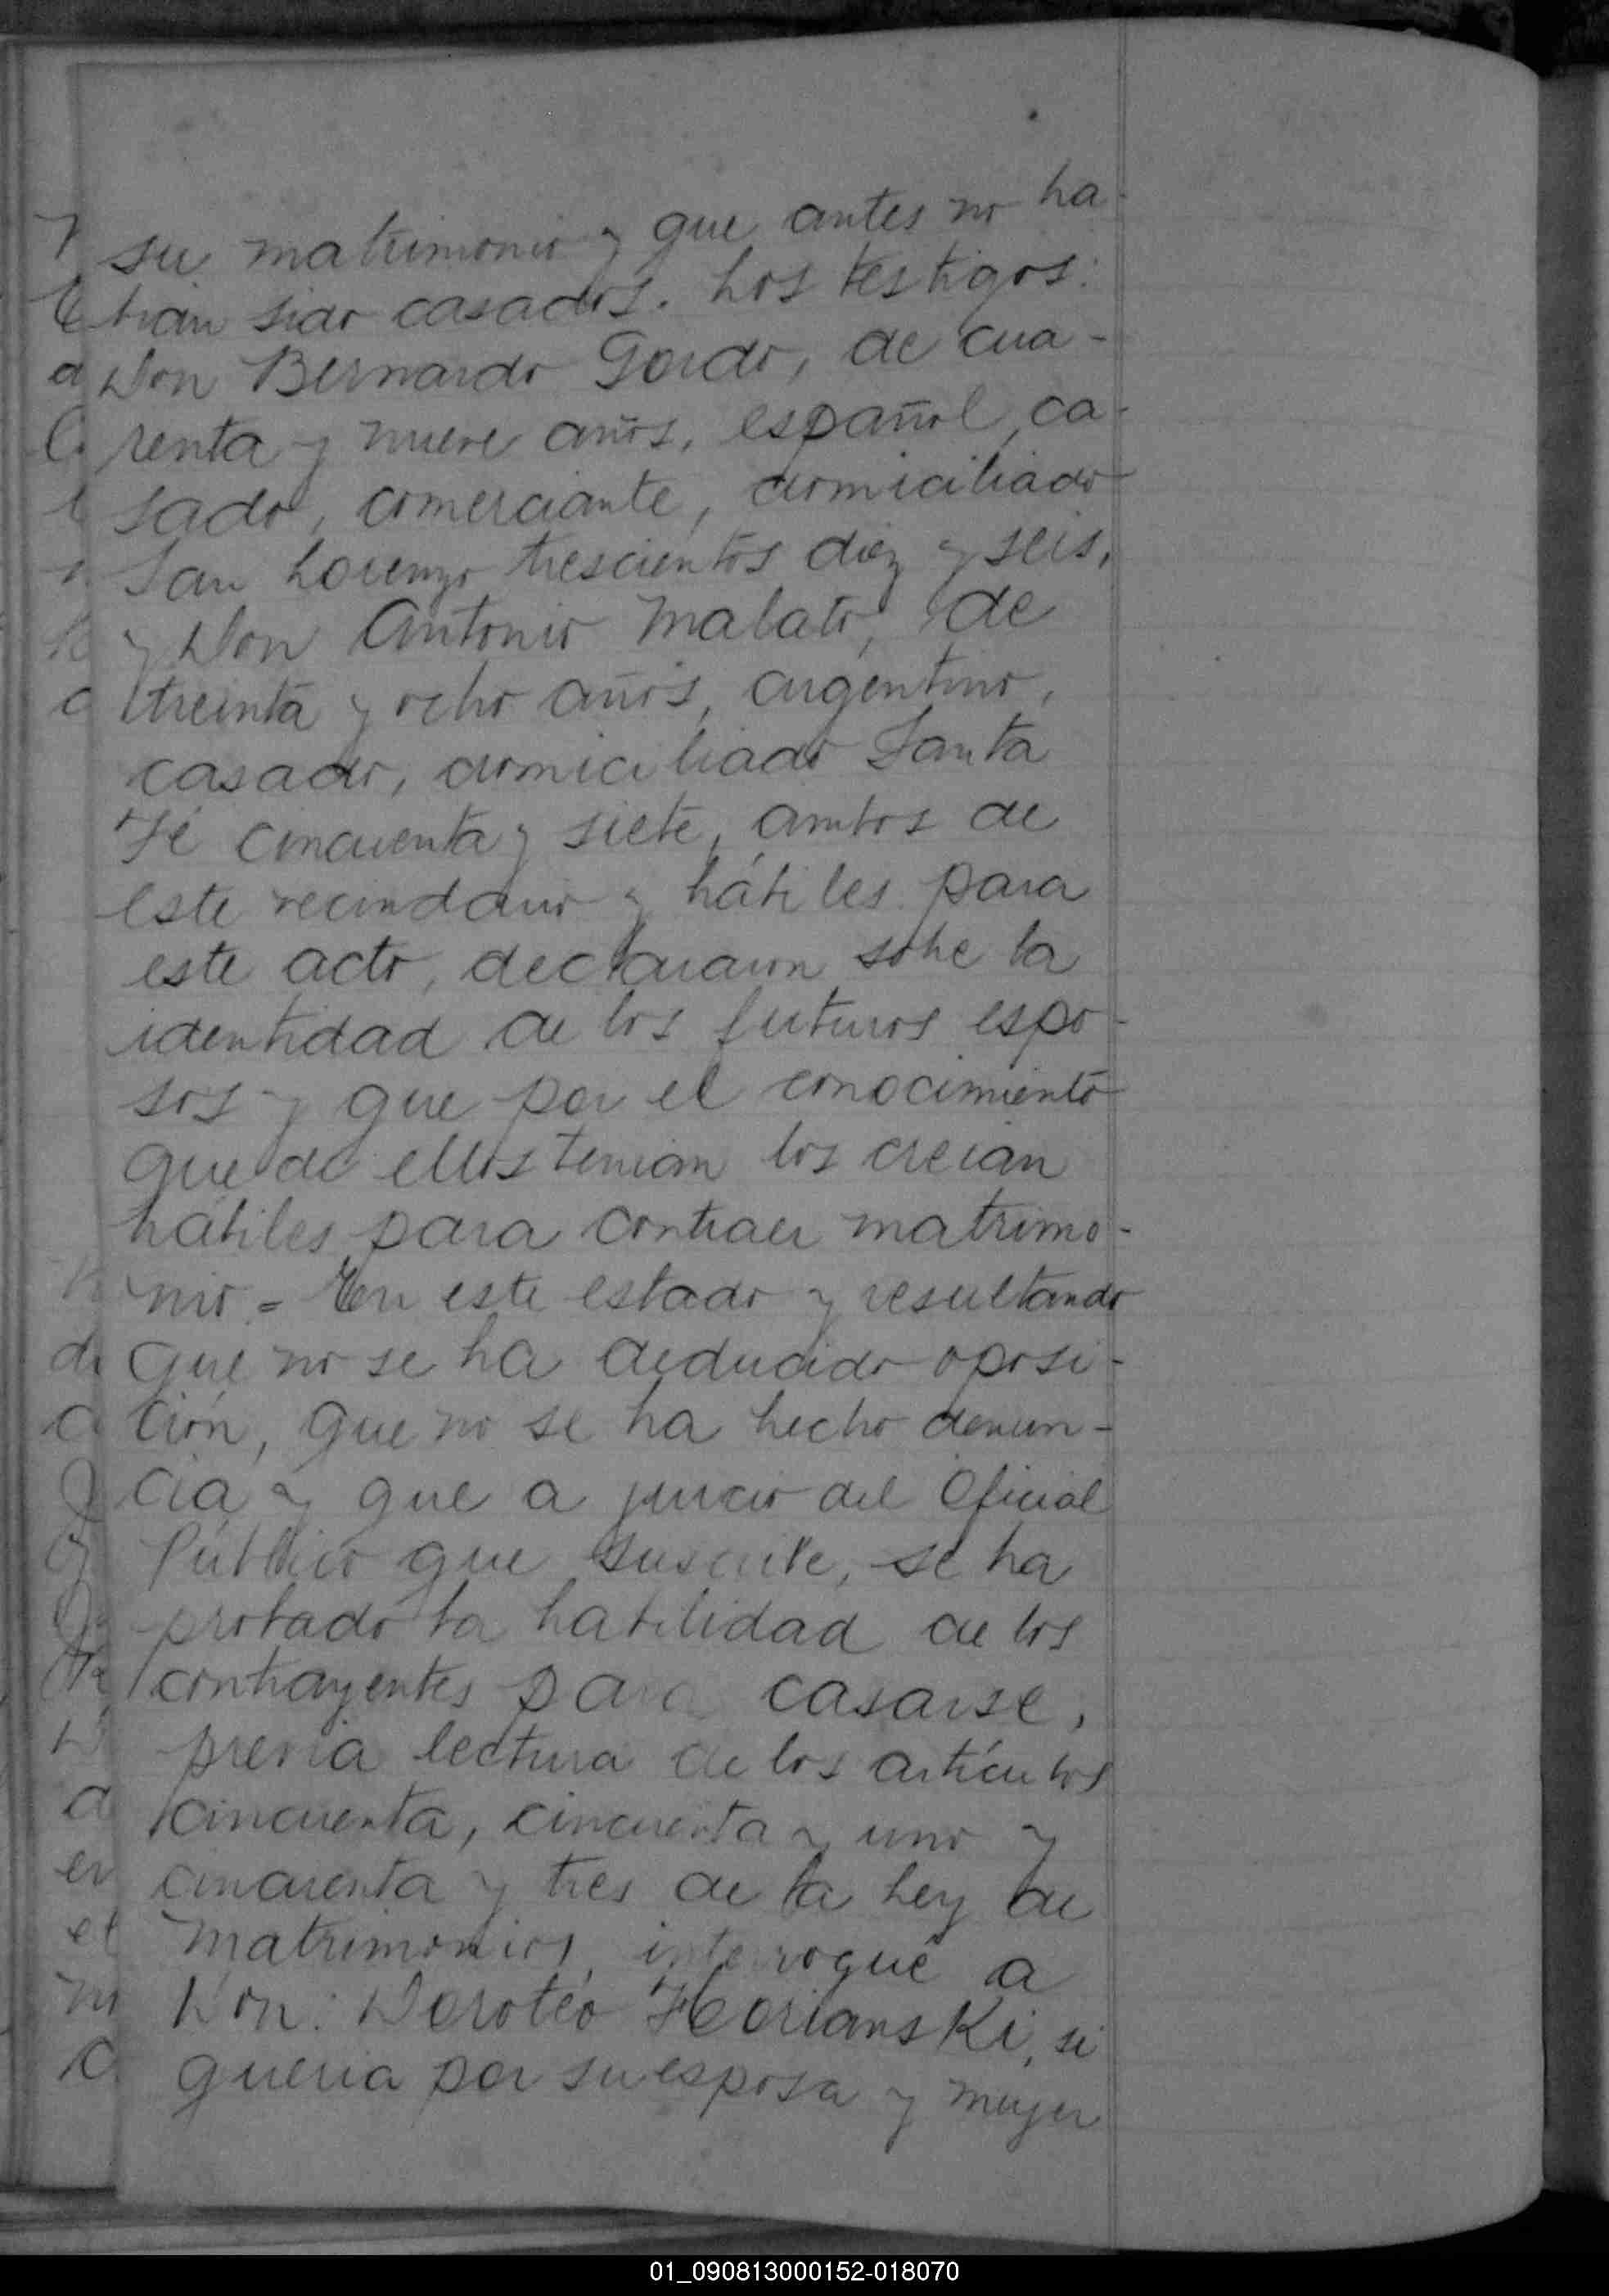 su matrimonio y que antes no ha-
bian sido casados. Los testigos:
Don Bernardo Gordo, de cua-
renta y nueve años, español, ca-
sado, comerciante, domiciliado
San Lorenzo trescientos diez y seis,
y Don Antonio Malato, de
treinta y ocho años, argentino,
casado, domiciliado Santa
Fé cincuenta y siete, ambos de
este vecindario y hábiles para
este acto, declararon sobre la
identidad de los futuros espo-
sos y que por el conocimiento
que de ellos tenian los creian
hábiles para contraer matrimo-
nio. = En este estado y resultando
que no se ha deducido oposi-
ción, que no se ha hecho denun-
cia y que a juicio del Oficial
Público que suscribe, se ha
probado la habilidad de los
contrayentes para casarse,
previa lectura de los artículos
cincuenta, cincuenta y uno y
cincuenta y tres de la Ley de
Matrimonios, interrogué a
Don: Doroteo Florianski, si
queria por su esposa y mujer
01_090813000152-018070